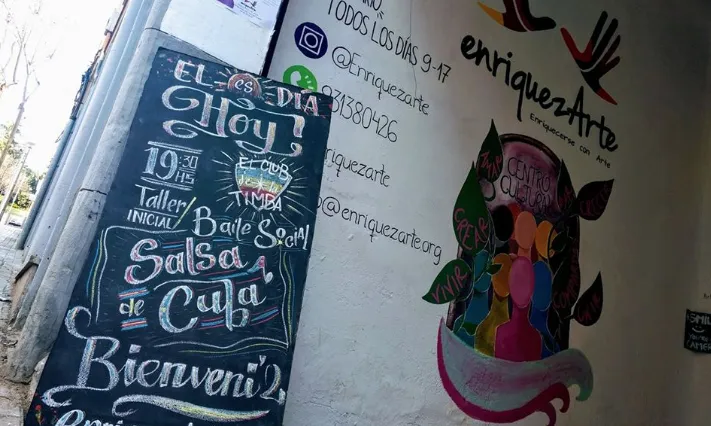 EL DÍA
es
Hoy!
19:30
HS
EL CLUB
de la
TIMBA
Taller
INICIAL/ Baile Social
Salsa
de Cuba
Bienveni2
TODOS LOS DÍAS 9-17
@Enriquezarte
931380426
@enriquezarte.org
enriquezArte
Enriquecerse con Arte
CENTRO
CULTURAL
CREER
VIVIR